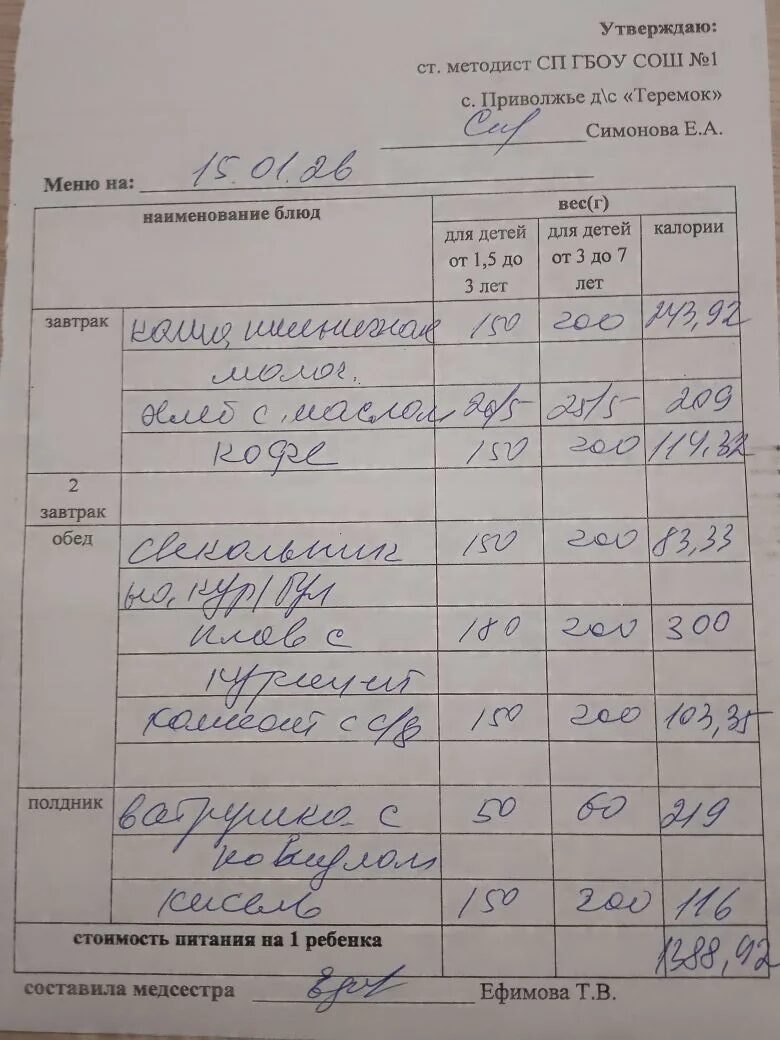 Утверждаю:
ст. методист СП ГБОУ СОШ №1
с. Приволжье д\с «Теремок»
Симонова Е.А.
Меню на: 15.01.26
наименование блюд вес(г)
для детей от 1,5 до 3 лет для детей от 3 до 7 лет калории
завтрак каша пшеничная 150 200 243,92
молоч.
хлеб с маслом 20/5 25/5 209
кофе 150 200 114,32
2 завтрак
обед свекольник 150 200 83,33
на кур/бул
плов с 180 200 300
курицей
компот с с/ф 150 200 103,35
полдник ватрушка с 50 60 219
повидлом
кисель 150 200 116
стоимость питания на 1 ребенка 1388,92
составила медсестра Ефимова Т.В.